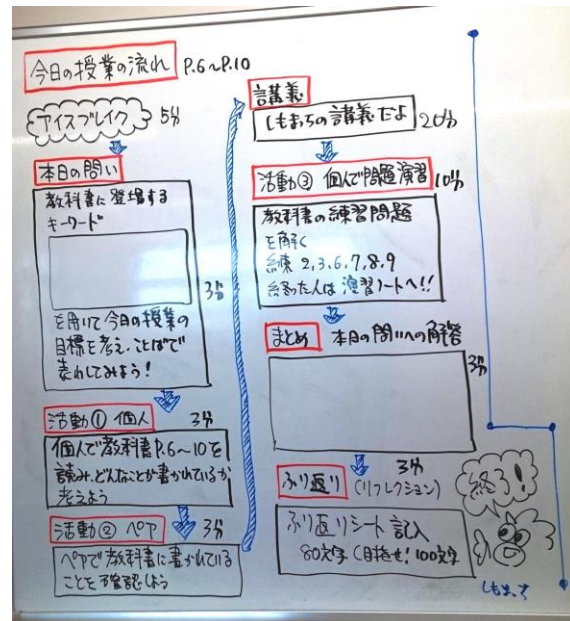 今日の授業の流れ P.6~P.10
アイスブレイク 5分
本日の問い
教科書に登場する
キーワード
3分
を用いて今日の授業の
目標を考え、ことばで
表わしてみよう!
活動① 個人 3分
個人で教科書P.6~10を
読み、どんなことが書かれているか
考えよう
活動② ペア 3分
ペアで教科書に書かれている
ことを確認しよう
講義
しもまっちの講義だよ 20分
活動③ 個人で問題演習 10分
教科書の練習問題
を解く
練 2,3,6,7,8,9
終わった人は演習ノートへ!!
まとめ 本日の問いへの解答
3分
ふり返り (リフレクション) 3分
ふり返りシート記入
80文字 (目指せ! 100文字
終了!
しもまっち